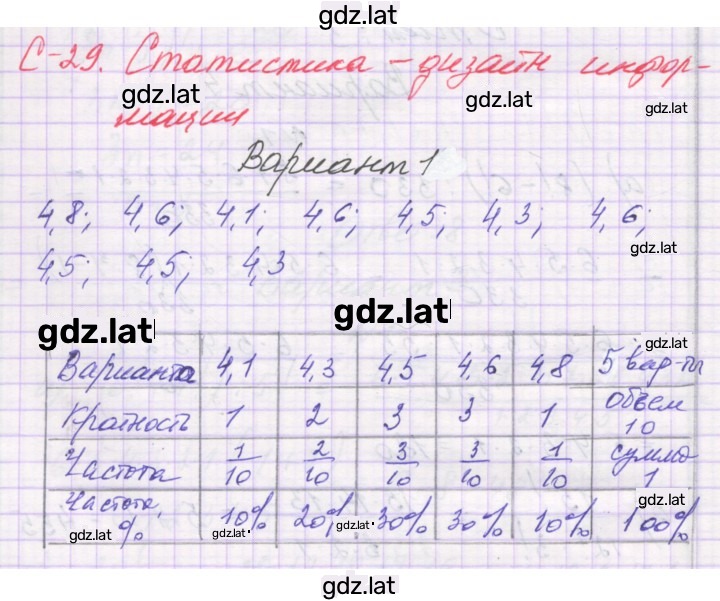 gdz.lat
С-29. Статистика - дизайн инфор-
gdz.lat gdz.lat gdz.lat
мации
Вариант 1
4,8; 4,6; 4,1; 4,6; 4,5; 4,3; 4,6;
gdz.lat
4,5; 4,5; 4,3
gdz.lat gdz.lat gdz.lat
Варианта 4,1 4,3 4,5 4,6 4,8 5 вар-ты
Кратность 1 2 3 3 1 объем 10
Частота 1/10 2/10 3/10 3/10 1/10 сумма 1
gdz.lat
Частота, % 10% 20% 30% 30% 10% 100%
gdz.lat gdz.lat gdz.lat gdz.lat
gdz.lat